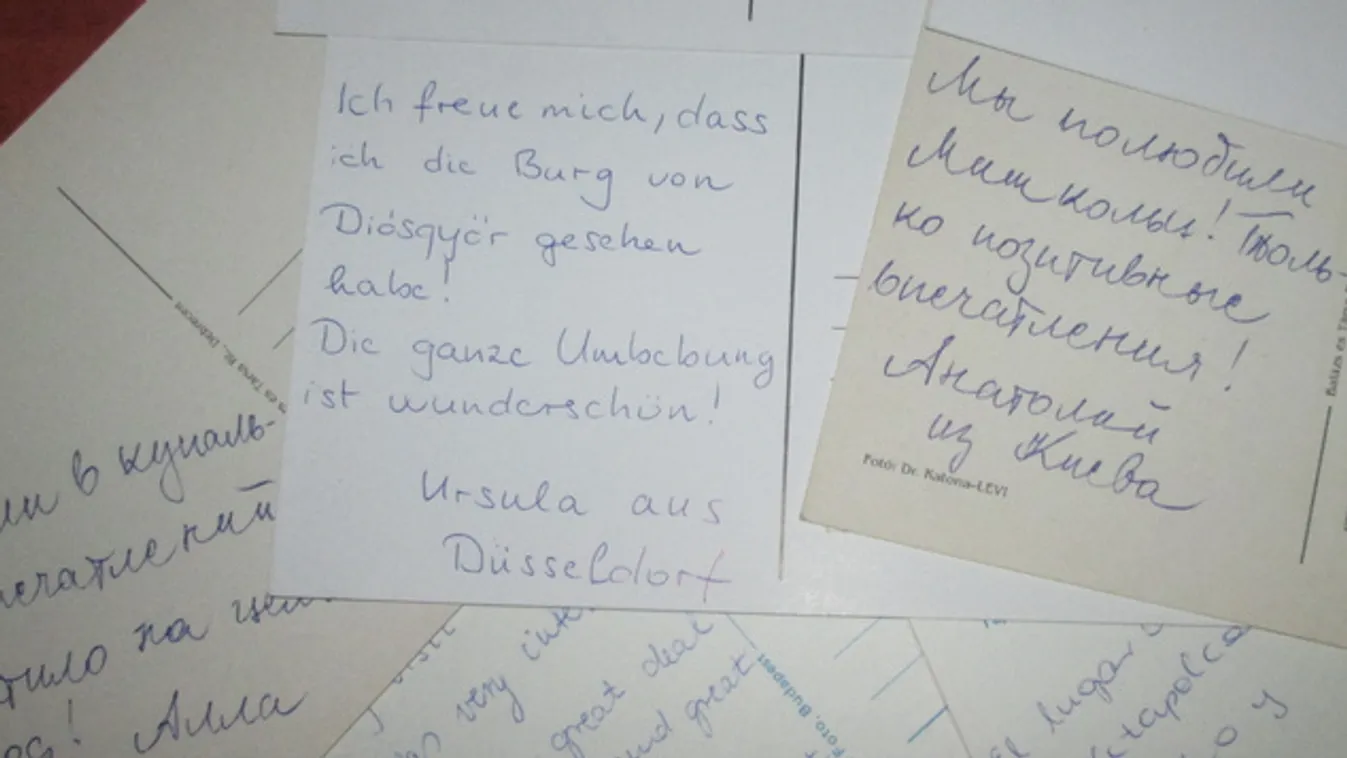 Ich freue mich, dass
ich die Burg von
Diósgyőr gesehen
habe!
Die ganze Umbebung
ist wunderschön!
Ursula aus
Düsseldorf
Мы полюбили
Мишкольц! Толь-
ко позитивные
впечатления!
Анатолий
из Киева
Fotó: Dr. Katona-LEVI
в купаль-
Алла
very
great deal
great
Foto, Budapest
lugar
y